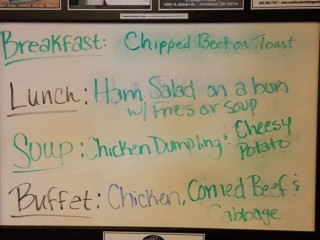 Breakfast: Chipped Beef on Toast
Lunch: Ham Salad on a bun
w/ Fries or Soup
Soup: Chicken Dumpling & Cheesy
Potato
Buffet: Chicken, Corned Beef &
Cabbage